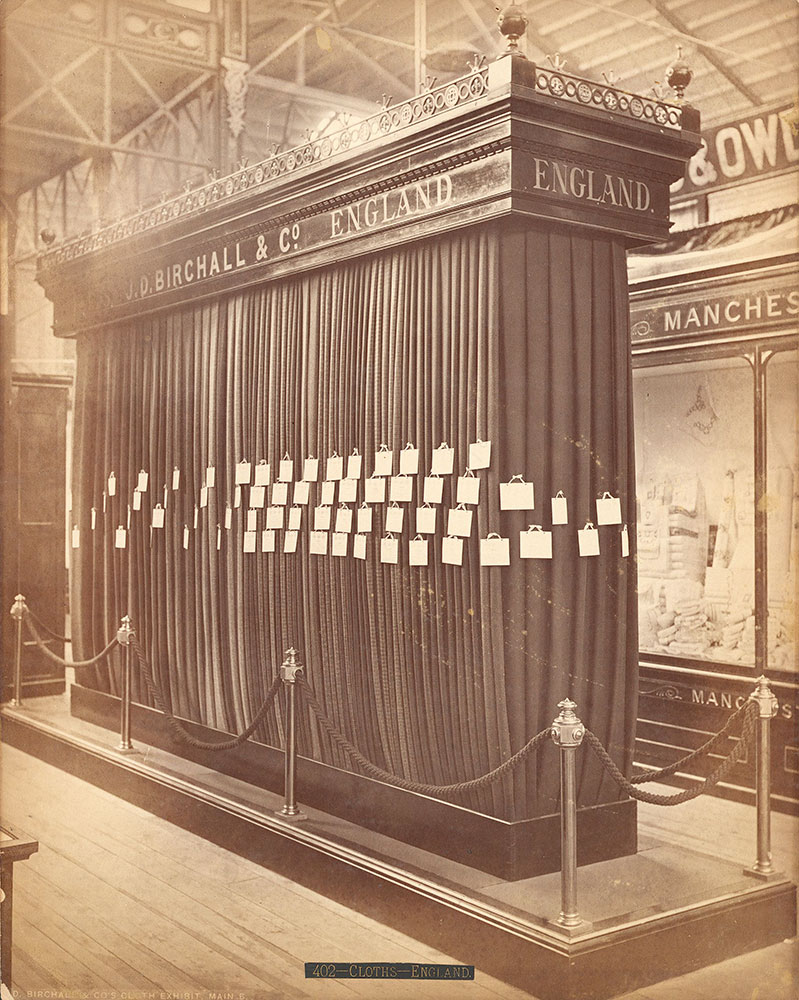 & OWE
ENGLAND.
J.D. BIRCHALL & Co. ENGLAND
MANCHES
MANCHES
402—CLOTHS—ENGLAND.
D. BIRCHALL & CO'S CLOTH EXHIBIT, MAIN B.